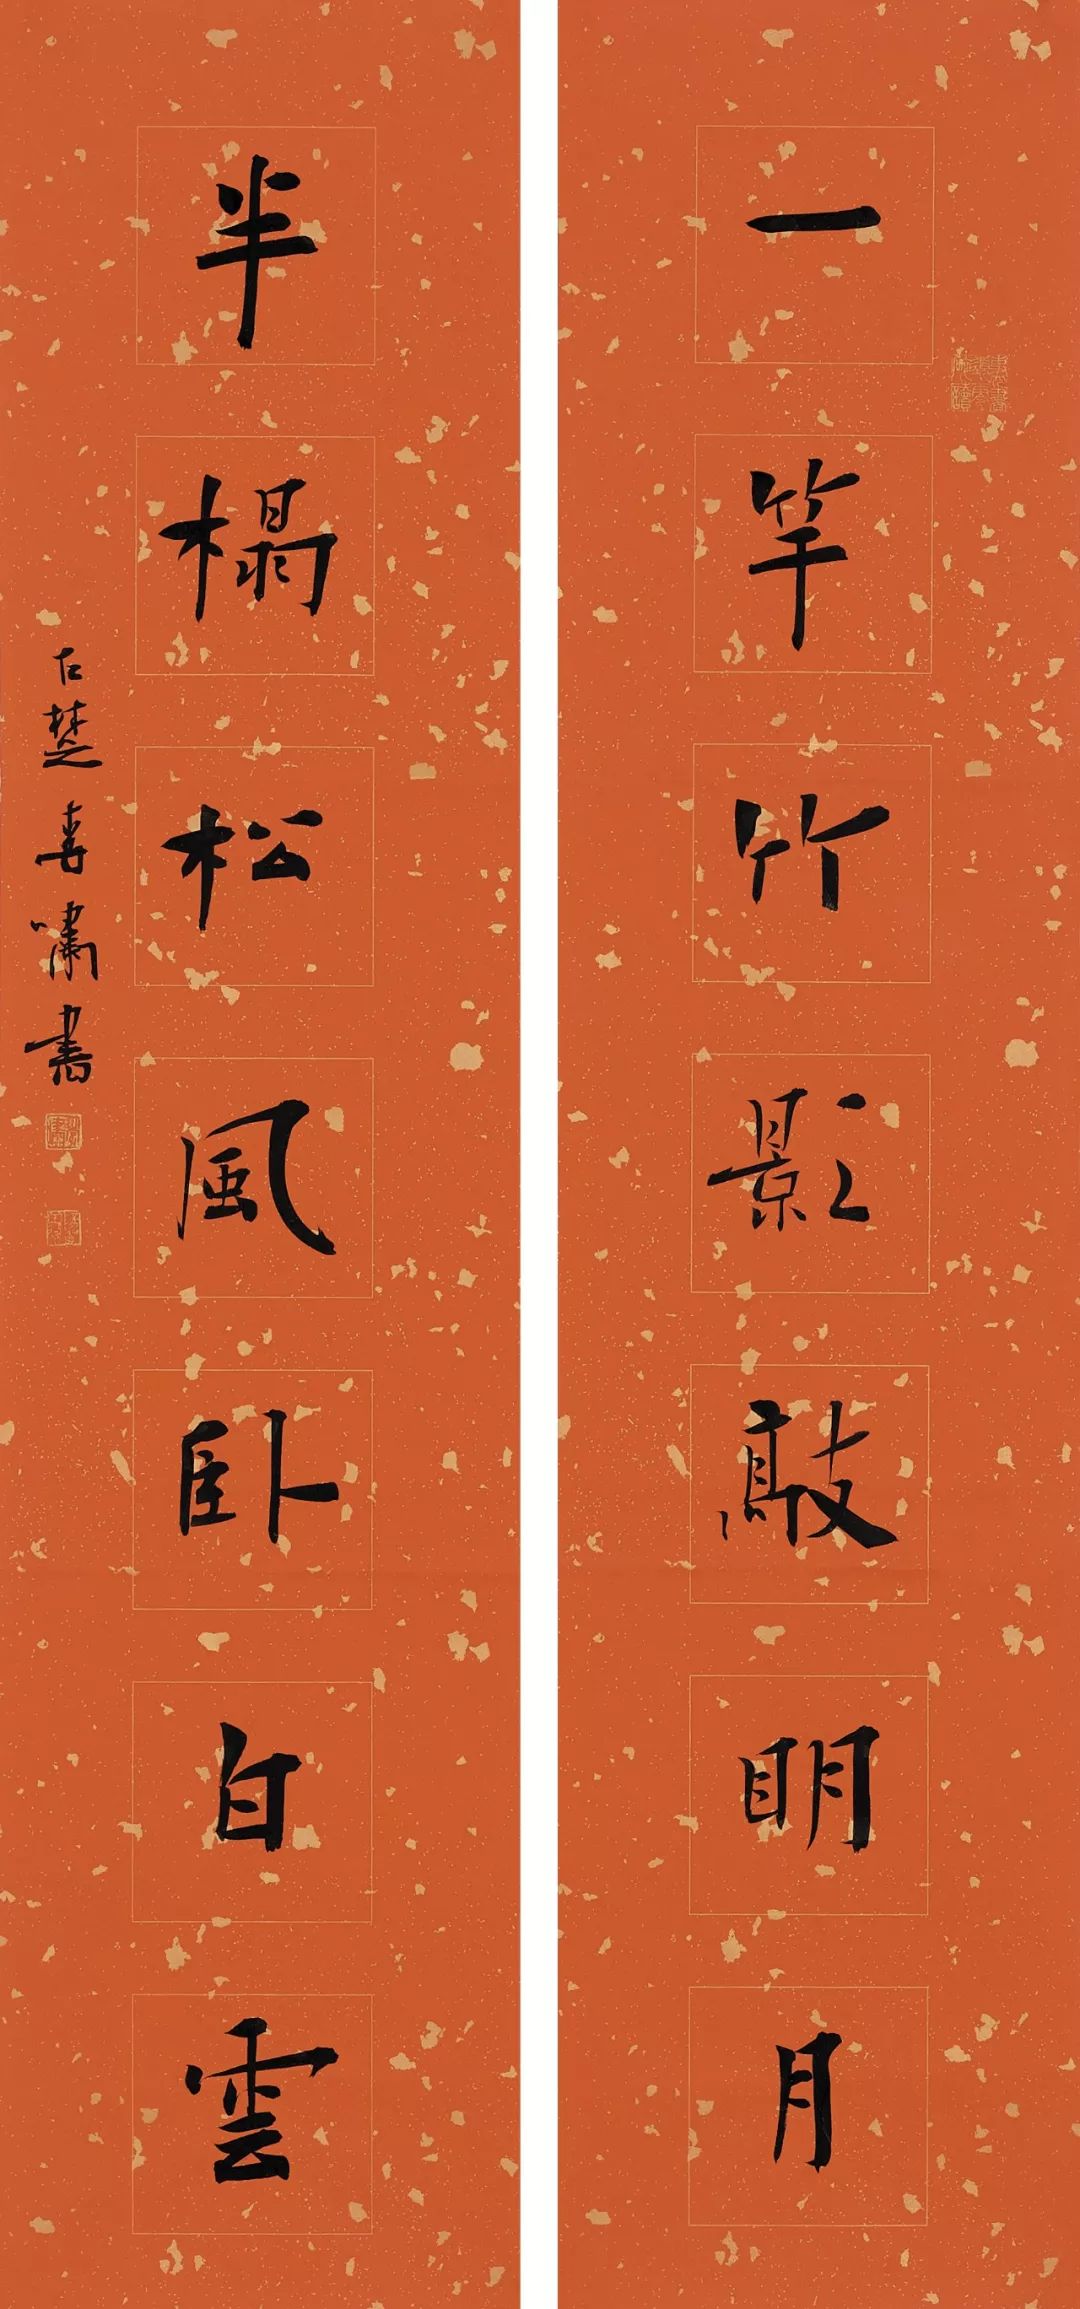 一竿竹影敲明月
半榻松風卧白雲
左楚春嘯書